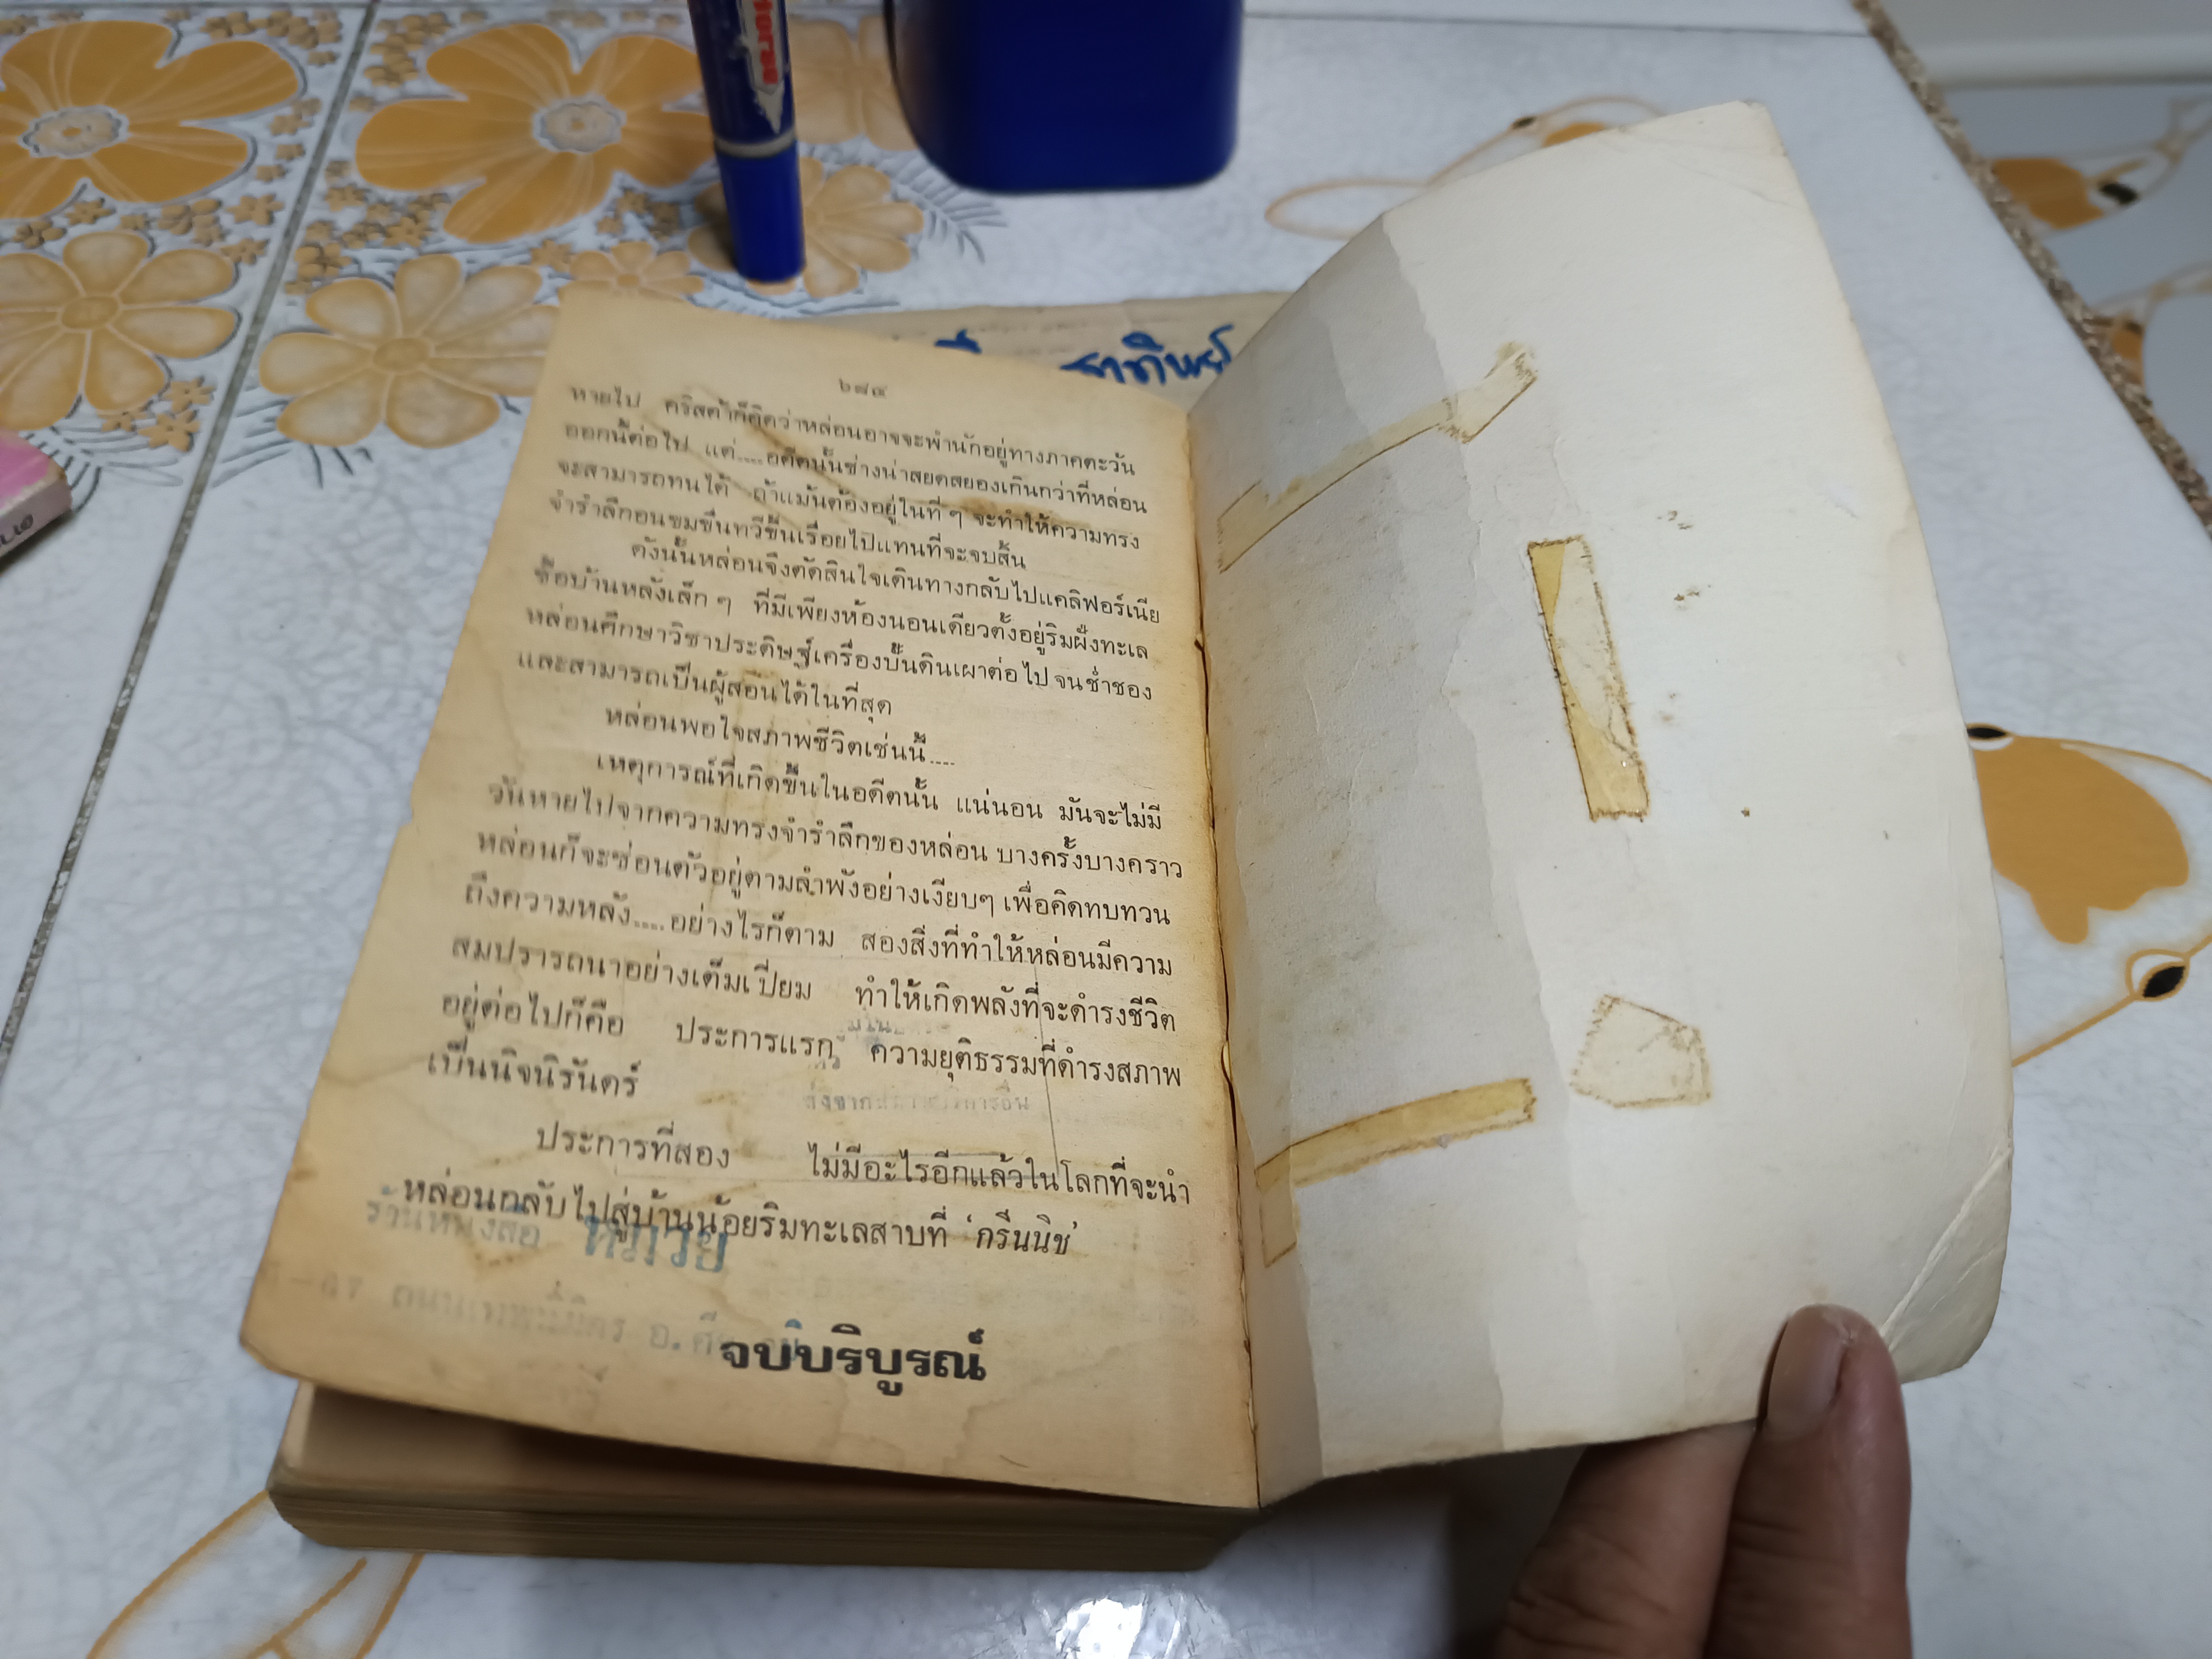 Horse
๖๘๔
หายไป คริสต้าก็คิดว่าหล่อนอาจจะพำนักอยู่ทางภาคตะวัน
ออกนี้ต่อไป แต่....อดีตนั้นช่างน่าสยดสยองเกินกว่าที่หล่อน
จะสามารถทนได้ ถ้าแม้นต้องอยู่ในที่ ๆ จะทำให้ความทรง
จำรำลึกอนขมขื่นทวีขึ้นเรื่อยไปแทนที่จะจบสิ้น
ดังนั้นหล่อนจึงตัดสินใจเดินทางกลับไปแคลิฟอร์เนีย
ซื้อบ้านหลังเล็ก ๆ ที่มีเพียงห้องนอนเดียวตั้งอยู่ริมฝั่งทะเล
หล่อนศึกษาวิชาประดิษฐ์เครื่องปั้นดินเผาต่อไป จนช่ำชอง
และสามารถเป็นผู้สอนได้ในที่สุด
หล่อนพอใจสภาพชีวิตเช่นนี้....
เหตุการณ์ที่เกิดขึ้นในอดีตนั้น แน่นอน มันจะไม่มี
วันหายไปจากความทรงจำรำลึกของหล่อน บางครั้งบางคราว
หล่อนก็จะซ่อนตัวอยู่ตามลำพังอย่างเงียบๆ เพื่อคิดทบทวน
ถึงความหลัง....อย่างไรก็ตาม สองสิ่งที่ทำให้หล่อนมีความ
สมปรารถนาอย่างเต็มเปี่ยม ทำให้เกิดพลังที่จะดำรงชีวิต
อยู่ต่อไปก็คือ ประการแรก ความยุติธรรมที่ดำรงสภาพ
เป็นนิจนิรันดร์
ประการที่สอง ไม่มีอะไรอีกแล้วในโลกที่จะนำ
หล่อนกลับไปสู่บ้านน้อยริมทะเลสาบที่ 'กรีนนิช'
ร้านหนังสือ
จบบริบูรณ์